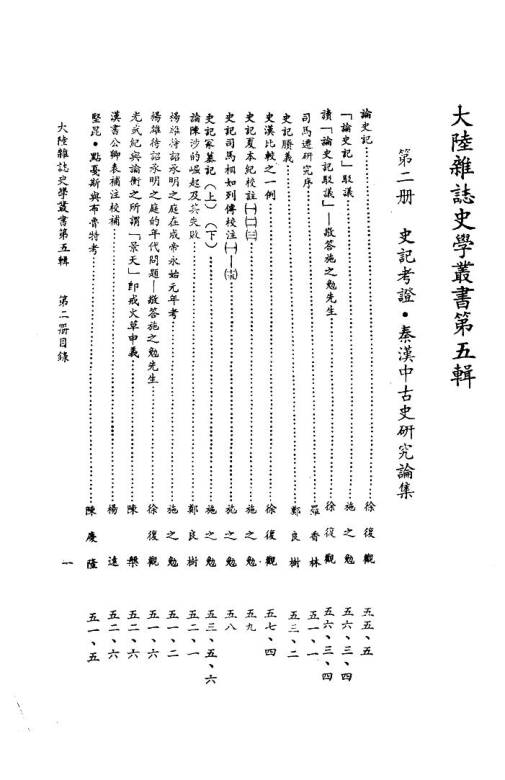 大陸雜誌史學叢書第五輯
第二册　史記考證・秦漢中古史研究論集
論史記……徐復觀　五五、五
「論史記」駁議……施之勉　五六、三、四
讀「論史記駁議」—敬答施之勉先生……徐復觀　五六、三、四
司馬遷研究序……羅香林　五一、一
史記賸義……鄭良樹　五三、二
史漢比較之一例……徐復觀　五七、四
史記夏本紀校註㈠㈡㈢……施之勉　五九
史記司馬相如列傳校注㈠—……施之勉　五八
史記冢墓記（上）（下）……施之勉　五三、五、六
論陳涉的崛起及其失敗……鄭良樹　五二、一
楊雄待詔承明之庭在成帝永始元年考……施之勉　五一、二
楊雄待詔承明之庭的年代問題—敬答施之勉先生……徐復觀　五一、六
光武紀與論衡之所謂「景天」卽戒火草申義……陳槃　五二、六
漢書公卿表補注校補……楊遠　五二、六
堅昆・黠戛斯與布魯特考……陳慶隆　五一、五
大陸雜誌史學叢書第五輯　第二册目錄　一